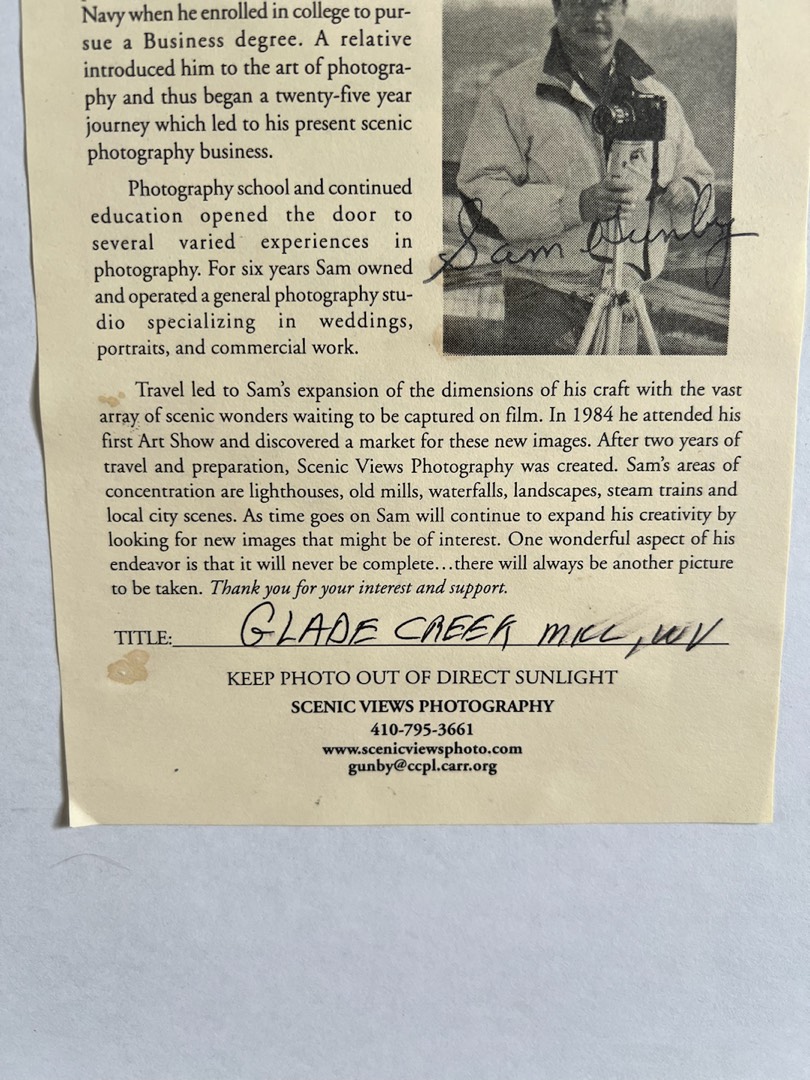 Navy when he enrolled in college to pur-
sue a Business degree. A relative
introduced him to the art of photogra-
phy and thus began a twenty-five year
journey which led to his present scenic
photography business.
Photography school and continued
education opened the door to
several varied experiences in
photography. For six years Sam owned
and operated a general photography stu-
dio specializing in weddings,
portraits, and commercial work.
Sam Gunby
Travel led to Sam's expansion of the dimensions of his craft with the vast
array of scenic wonders waiting to be captured on film. In 1984 he attended his
first Art Show and discovered a market for these new images. After two years of
travel and preparation, Scenic Views Photography was created. Sam's areas of
concentration are lighthouses, old mills, waterfalls, landscapes, steam trains and
local city scenes. As time goes on Sam will continue to expand his creativity by
looking for new images that might be of interest. One wonderful aspect of his
endeavor is that it will never be complete...there will always be another picture
to be taken. Thank you for your interest and support.
TITLE: GLADE CREEK MILL, WV
KEEP PHOTO OUT OF DIRECT SUNLIGHT
SCENIC VIEWS PHOTOGRAPHY
410-795-3661
www.scenicviewsphoto.com
gunby@ccpl.carr.org